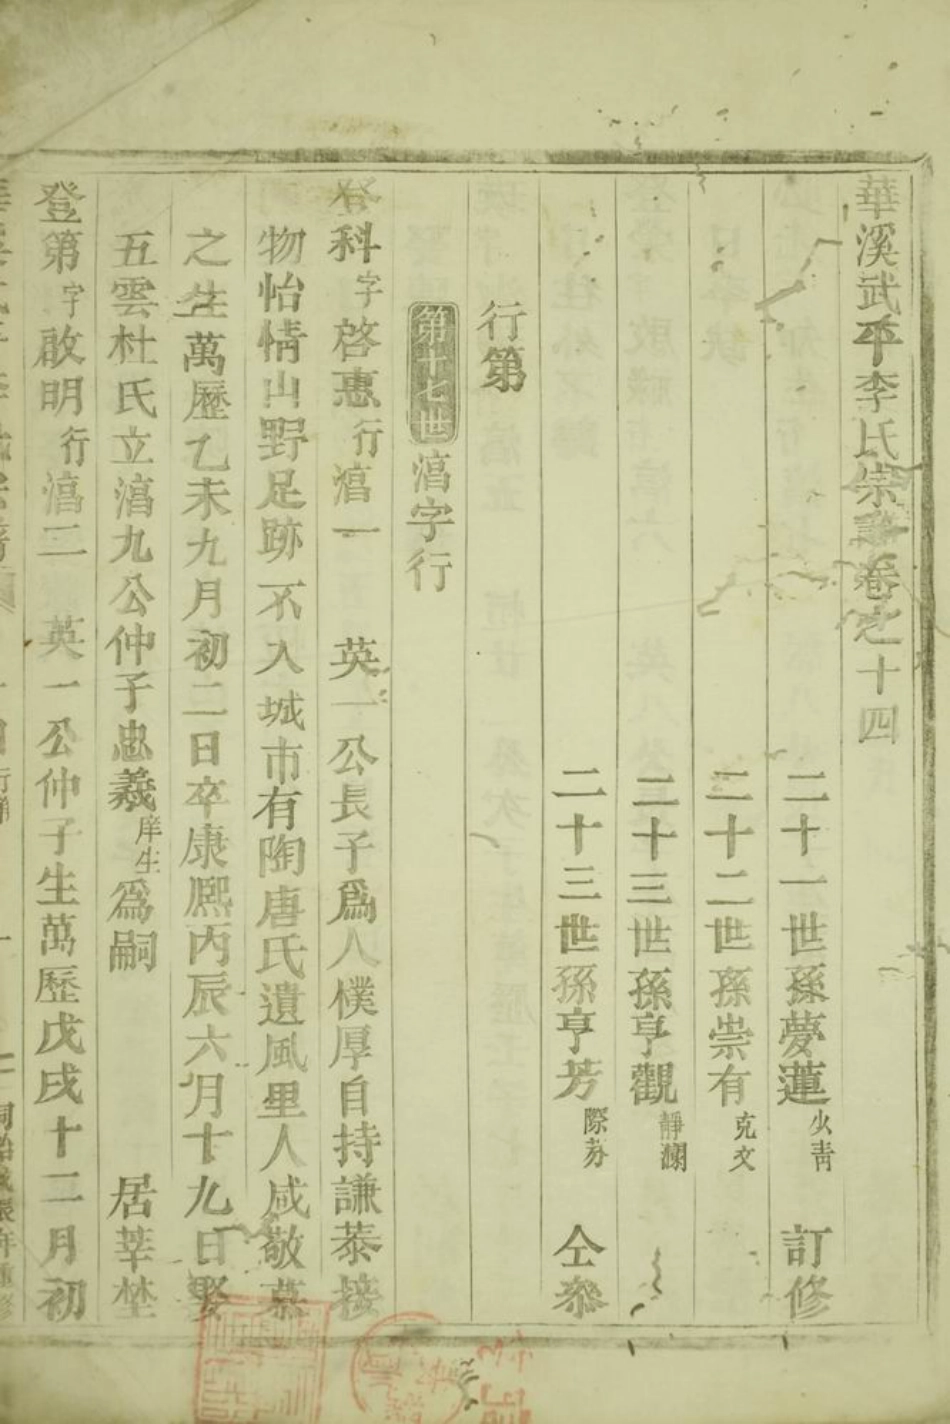 華溪武平李氏宗譜卷之十四
二十一世孫夢蓮 火青 訂修
二十二世孫崇有 克文
二十三世孫亨觀 靜瀾
二十三世孫亨芳 際芬 仝叅
行第
第十七世 㵆字行
登科 字 啓惠 行 㵆一 英一公長子爲人樸厚自持謙恭接
物怡情山野足跡不入城市有陶唐氏遺風里人咸敬慕
之生萬歷乙未九月初二日卒康熙丙辰六月十九日娶
五雲杜氏立㵆九公仲子忠義 庠生 爲嗣 居莘埜
登第 字 啟明 行 㵆二 英一公仲子生萬歷戊戌十二月初